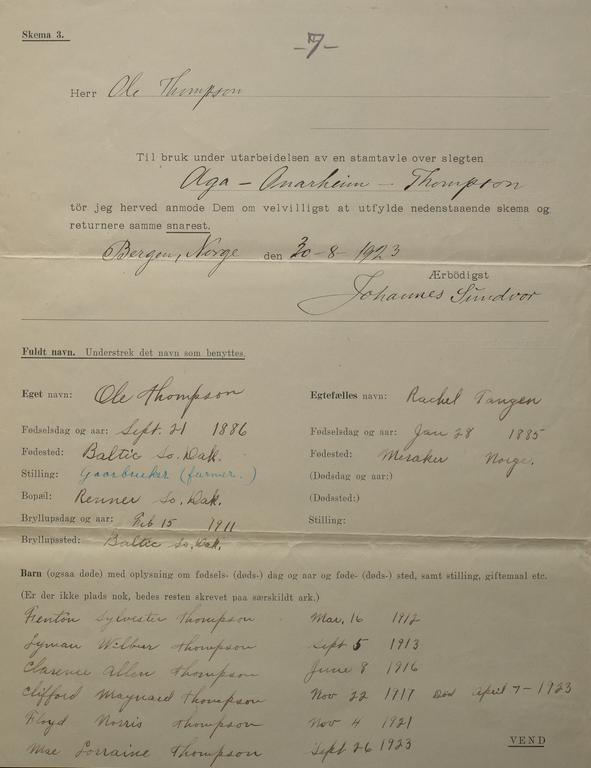 Skema 3.
-7-
Herr Ole Thompson
Til bruk under utarbeidelsen av en stamtavle over slegten
Aga - Anarheim - Thompson
tör jeg herved anmode Dem om velvilligst at utfylde nedenstaaende skema og
returnere samme snarest.
Bergen, Norge den 30-8-1923
Ærbödigst
Johannes Sundvor
Fuldt navn. Understrek det navn som benyttes.
Eget navn: Ole Thompson Egtefælles navn: Rachel Tangen
Fødselsdag og aar: Sept. 21 1886 Fødselsdag og aar: Jan 28 1885
Fødested: Baltic So. Dak. Fødested: Meraker Norge.
Stilling: Gaarbruker (farmer.) (Dødsdag og aar:)
Bopæl: Renner So. Dak. (Dødssted:)
Bryllupsdag og aar: Feb 15 1911 Stilling:
Bryllupssted: Baltic So. Dak.
Barn (ogsaa døde) med oplysning om fødsels- (døds-) dag og aar og føde- (døds-) sted, samt stilling, giftemaal etc.
(Er der ikke plads nok, bedes resten skrevet paa særskildt ark.)
Fenton Sylvester Thompson Mar. 16 1912
Lyman Wilbur Thompson Sept 5 1913
Clarence Allen Thompson June 8 1916
Clifford Maynard Thompson Nov 22 1917 Död April 7-1923
Floyd Norris Thompson Nov 4 1921
Mae Lorraine Thompson Sept 26 1923
VEND